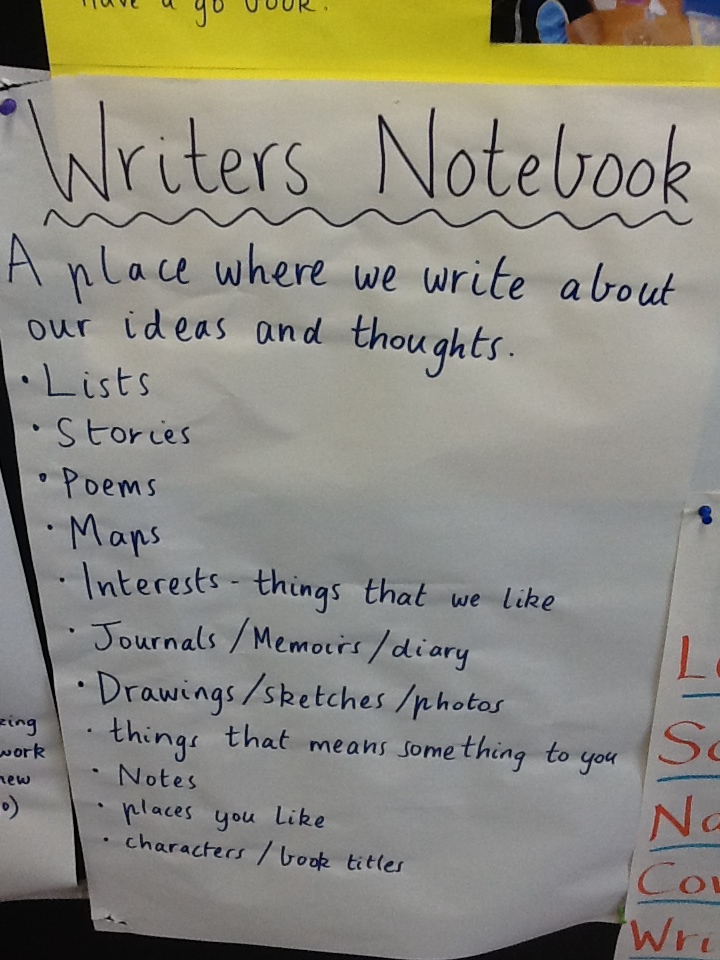 have a go book.
Writers Notebook
A place where we write about
our ideas and thoughts.
• Lists
• Stories
• Poems
• Maps
• Interests - things that we like
• Journals / Memoirs / diary
• Drawings / sketches / photos
• things that means something to you
• Notes
• places you like
• characters / book titles
work